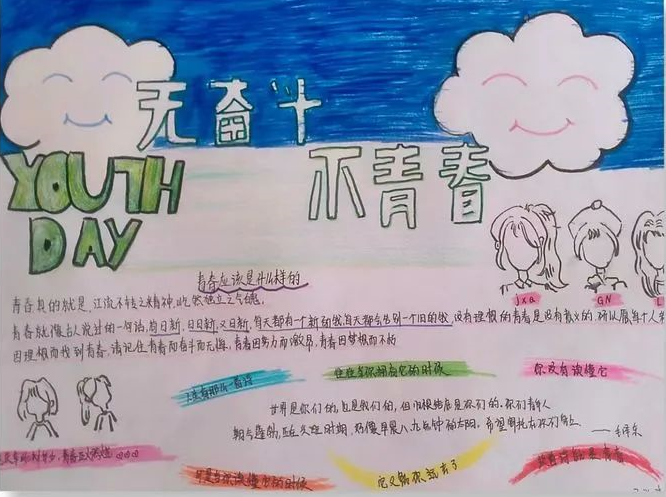 无奋斗
不青春
YOUTH
DAY
青春应该是什么样的
青春真的就是,江流不转之精神,屹然独立之气魄,
青春就像古人说过的一句话,苟日新,日日新,又日新,每天都有一个新的我,每天都会告别一个旧的我,没有理想的青春是没有意义的,所以愿每个人
因理想而找到青春,请记住青春因奋斗而无悔,青春因努力而激昂,青春因梦想而不朽
jxa
GN
L
的时候
你没有读懂它
世界是你们的,也是我们的,但归根结底是你们的,你们青年人
朝气蓬勃,正在兴旺时期,好像早晨八九点钟的太阳,希望寄托在你们身上
——毛泽东
青春正燃
的时候
它又